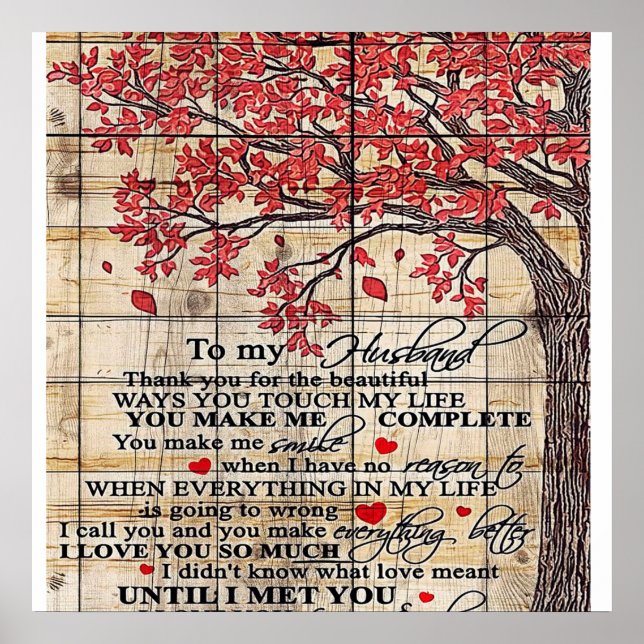 To my Husband
Thank you for the beautiful
WAYS YOU TOUCH MY LIFE
YOU MAKE ME COMPLETE
You make me smile
when I have no reason to
WHEN EVERYTHING IN MY LIFE
is going to wrong
I call you and you make everything better
I LOVE YOU SO MUCH
I didn't know what love meant
UNTIL I MET YOU